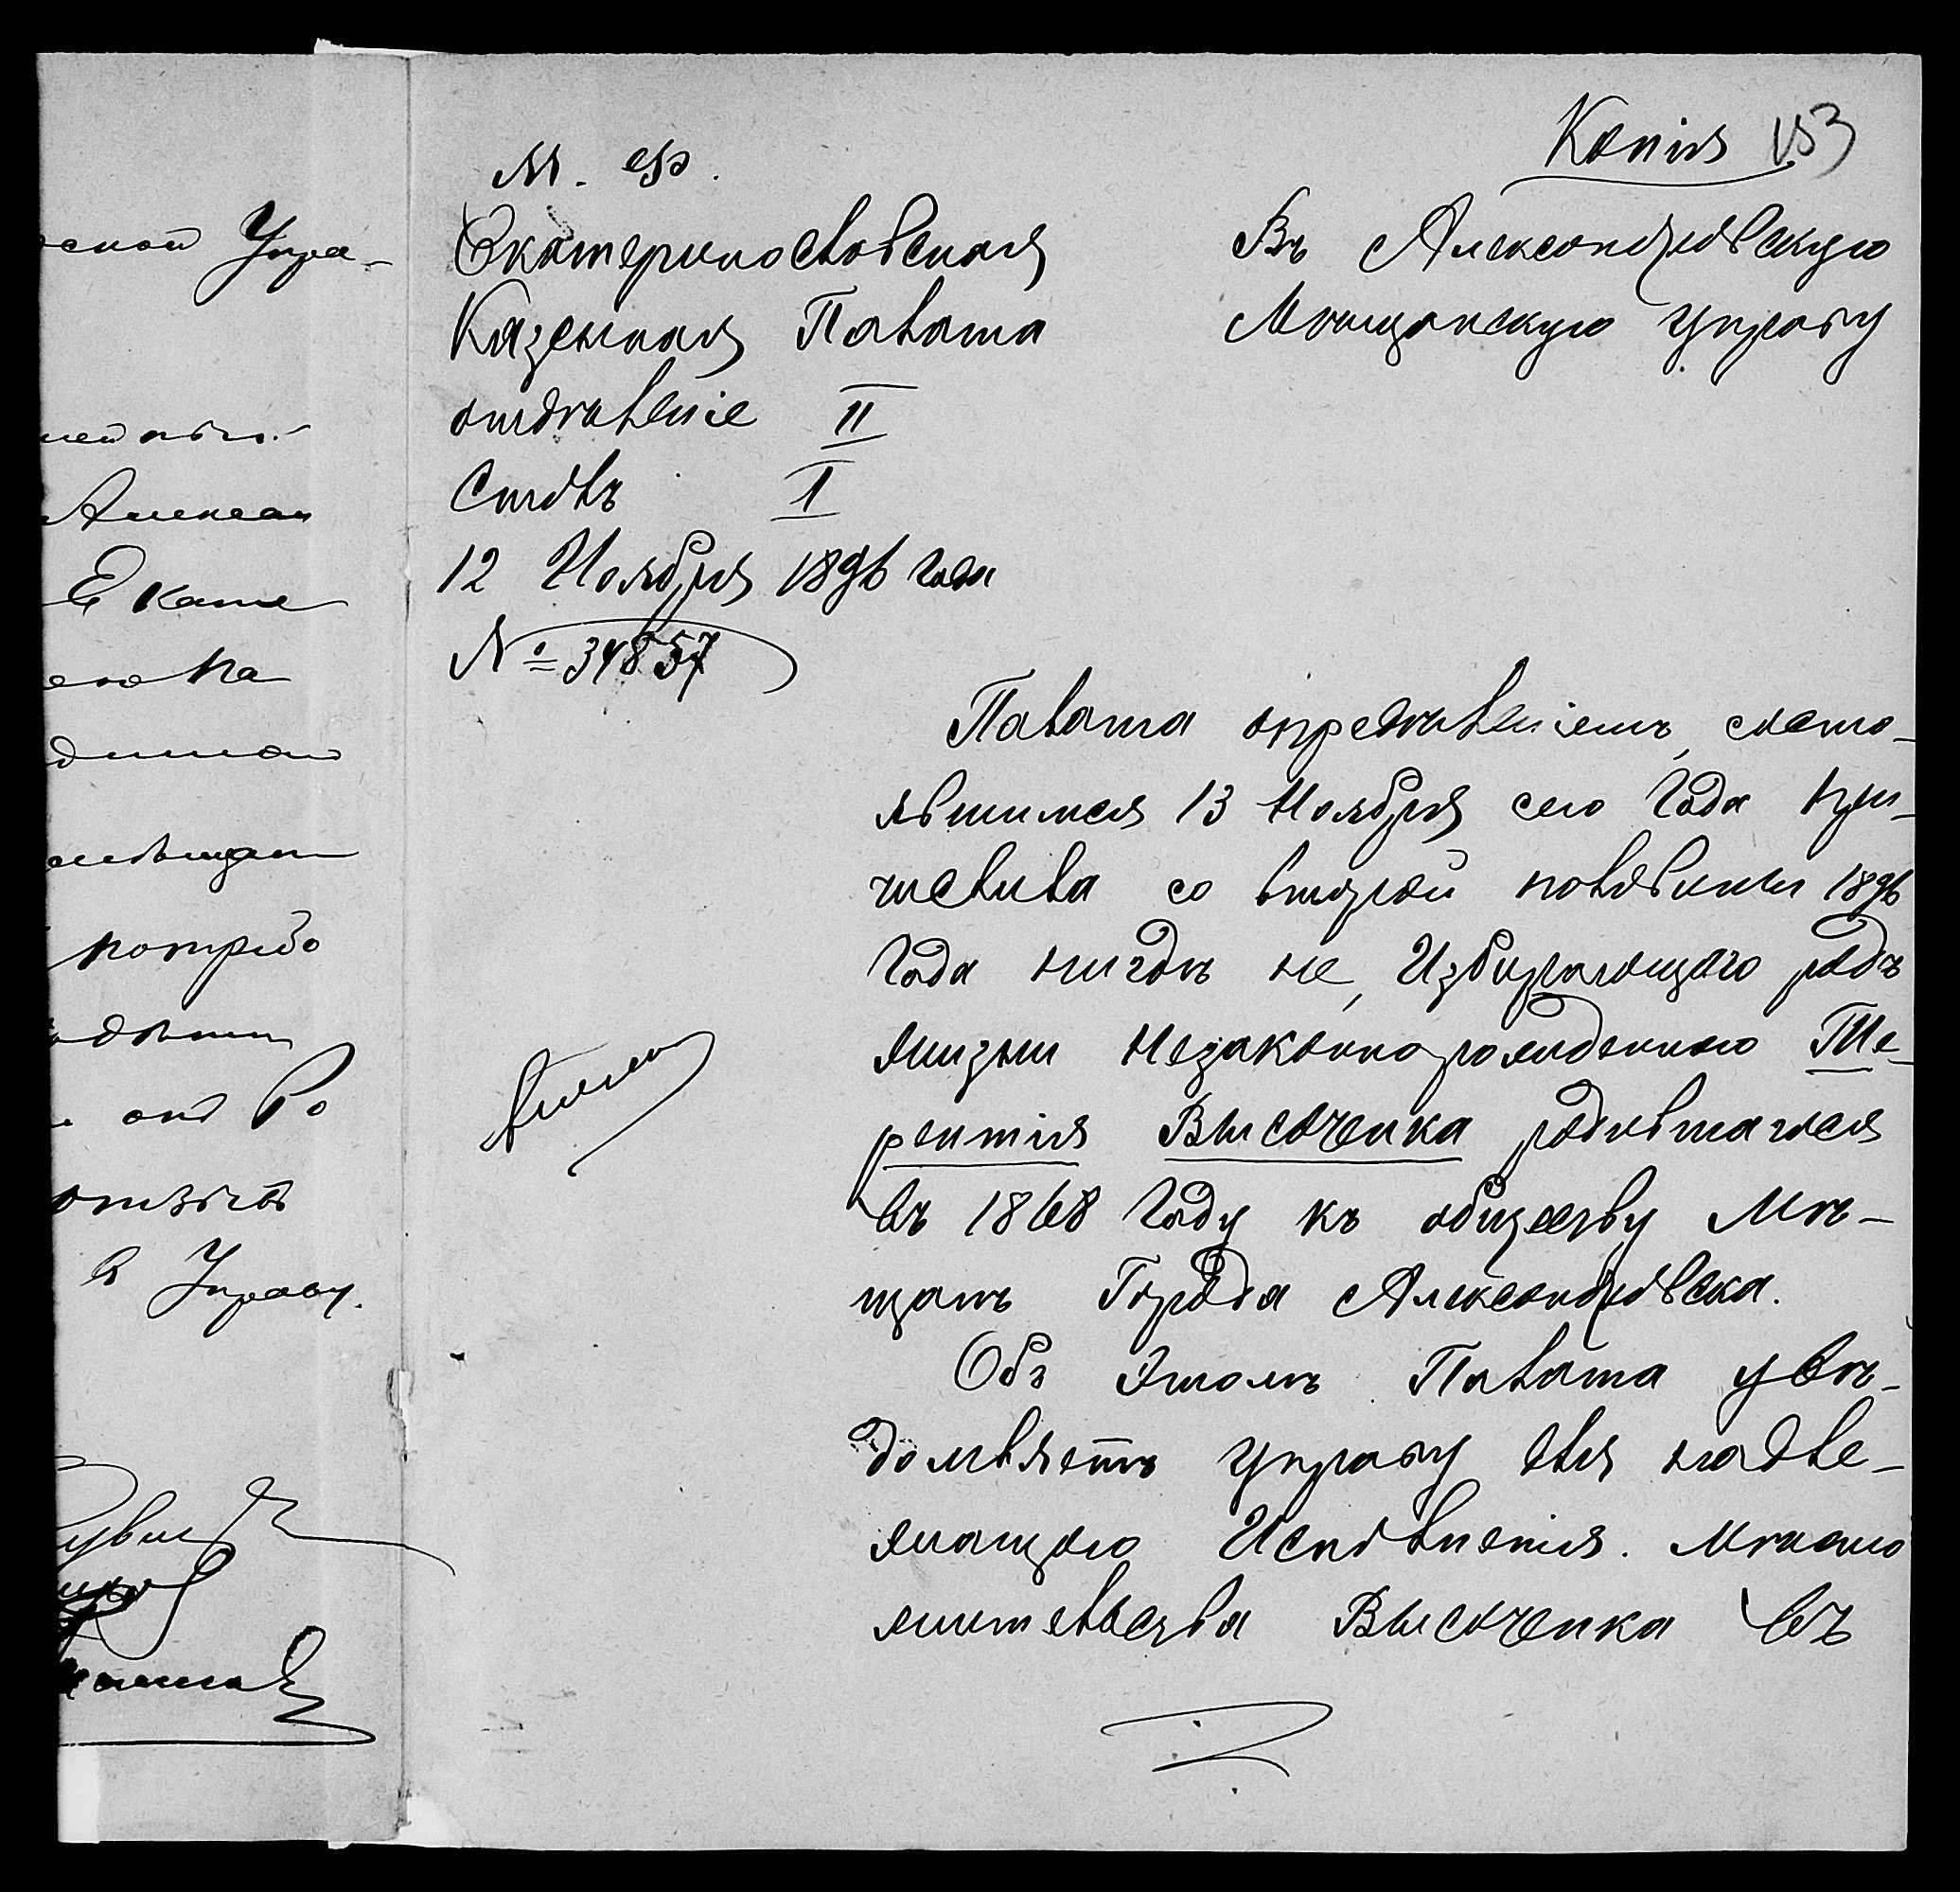 Копія 153
М. Ф.
Екатеринославская
Казенная Палата
отдѣленіе II
Столъ I
12 Ноября 1896 года
№ 34857
Въ Александровскую
Мѣщанскую управу
Палата опредѣленіемъ, состо-
явшимся 13 Ноября сего Года при-
числила со второй половины 1896
Года нигдѣ не, Избирающаго родъ
жизни Незаконнорожденного Те-
рентія Высоченка родившагося
въ 1868 Году къ обществу Мѣ-
щанъ Города Александровска.
Объ Этомъ Палата увѣ-
домляетъ управу для надле-
жащаго Исполненія. Мѣсто
жительства Высоченка въ
ской Упра-
Алексан
Екате
на
потребо
Ро
в Управу.